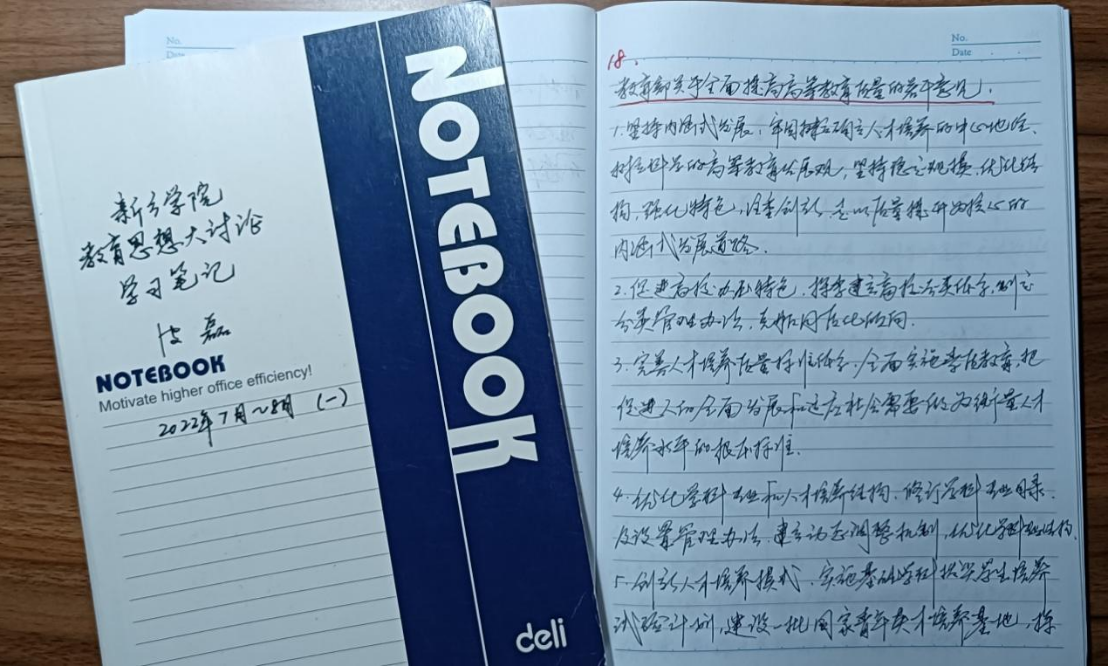 新乡学院
教育思想大讨论
学习笔记
磊
NOTEBOOK
Motivate higher office efficiency!
2022年7月~8月 (一)
NOTEBOOK
deli
No.
Date
No.
Date
18.
教育部关于全面提高高等教育质量的若干意见.
1.坚持内涵式发展,牢固确立人才培养的中心地位、
树立科学的高等教育发展观,坚持稳定规模、优化结
构、强化特色、注重创新,走以质量提升为核心的
内涵式发展道路.
2.促进高校办出特色.探索建立高校分类体系,制定
分类管理办法,克服同质化倾向.
3.完善人才培养质量标准体系,全面实施素质教育,把
促进人的全面发展和适应社会需要作为衡量人才
培养水平的根本标准.
4.优化学科专业和人才培养结构.修订学科专业目录
及设置管理办法,建立动态调整机制,优化学科专业结构.
5.创新人才培养模式.实施基础学科拔尖学生培养
试验计划,建设一批国家青年英才培养基地,探